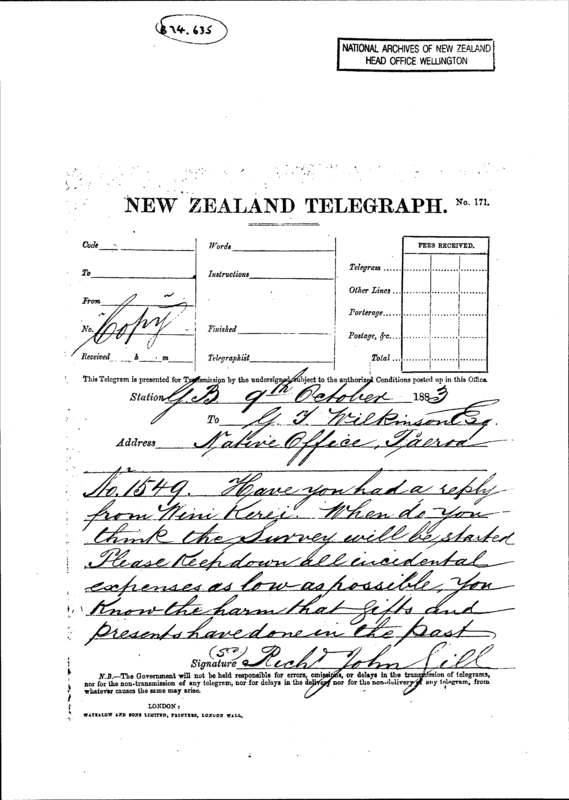 B 74.635
NATIONAL ARCHIVES OF NEW ZEALAND
HEAD OFFICE WELLINGTON
NEW ZEALAND TELEGRAPH. No. 171.
Code
To
From
No.
Received h m
Copy
Words
Instructions
Finished
Telegraphist
FEES RECEIVED.
Telegram ...
Other Lines ...
Porterage...
Postage, &c...
Total ...
This Telegram is presented for Transmission by the undersigned, subject to the authorized Conditions posted up in this Office.
Station G. B 9th October 1883
To G. T. Wilkinson Esq.
Address Native Office, Paeroa
No. 1549. Have you had a reply
from Wini Kerei. When do you
think the Survey will be started
Please Keep down all incidental
expenses as low as possible, you
Know the harm that gifts and
presents have done in the past
Signature Richd John Gill
N.B.—The Government will not be held responsible for errors, omissions, or delays in the transmission of telegrams,
nor for the non-transmission of any telegram, nor for delays in the delivery nor for the non-delivery of any telegram, from
whatever causes the same may arise.
LONDON:
WATERLOW AND SONS LIMITED, PRINTERS, LONDON WALL.